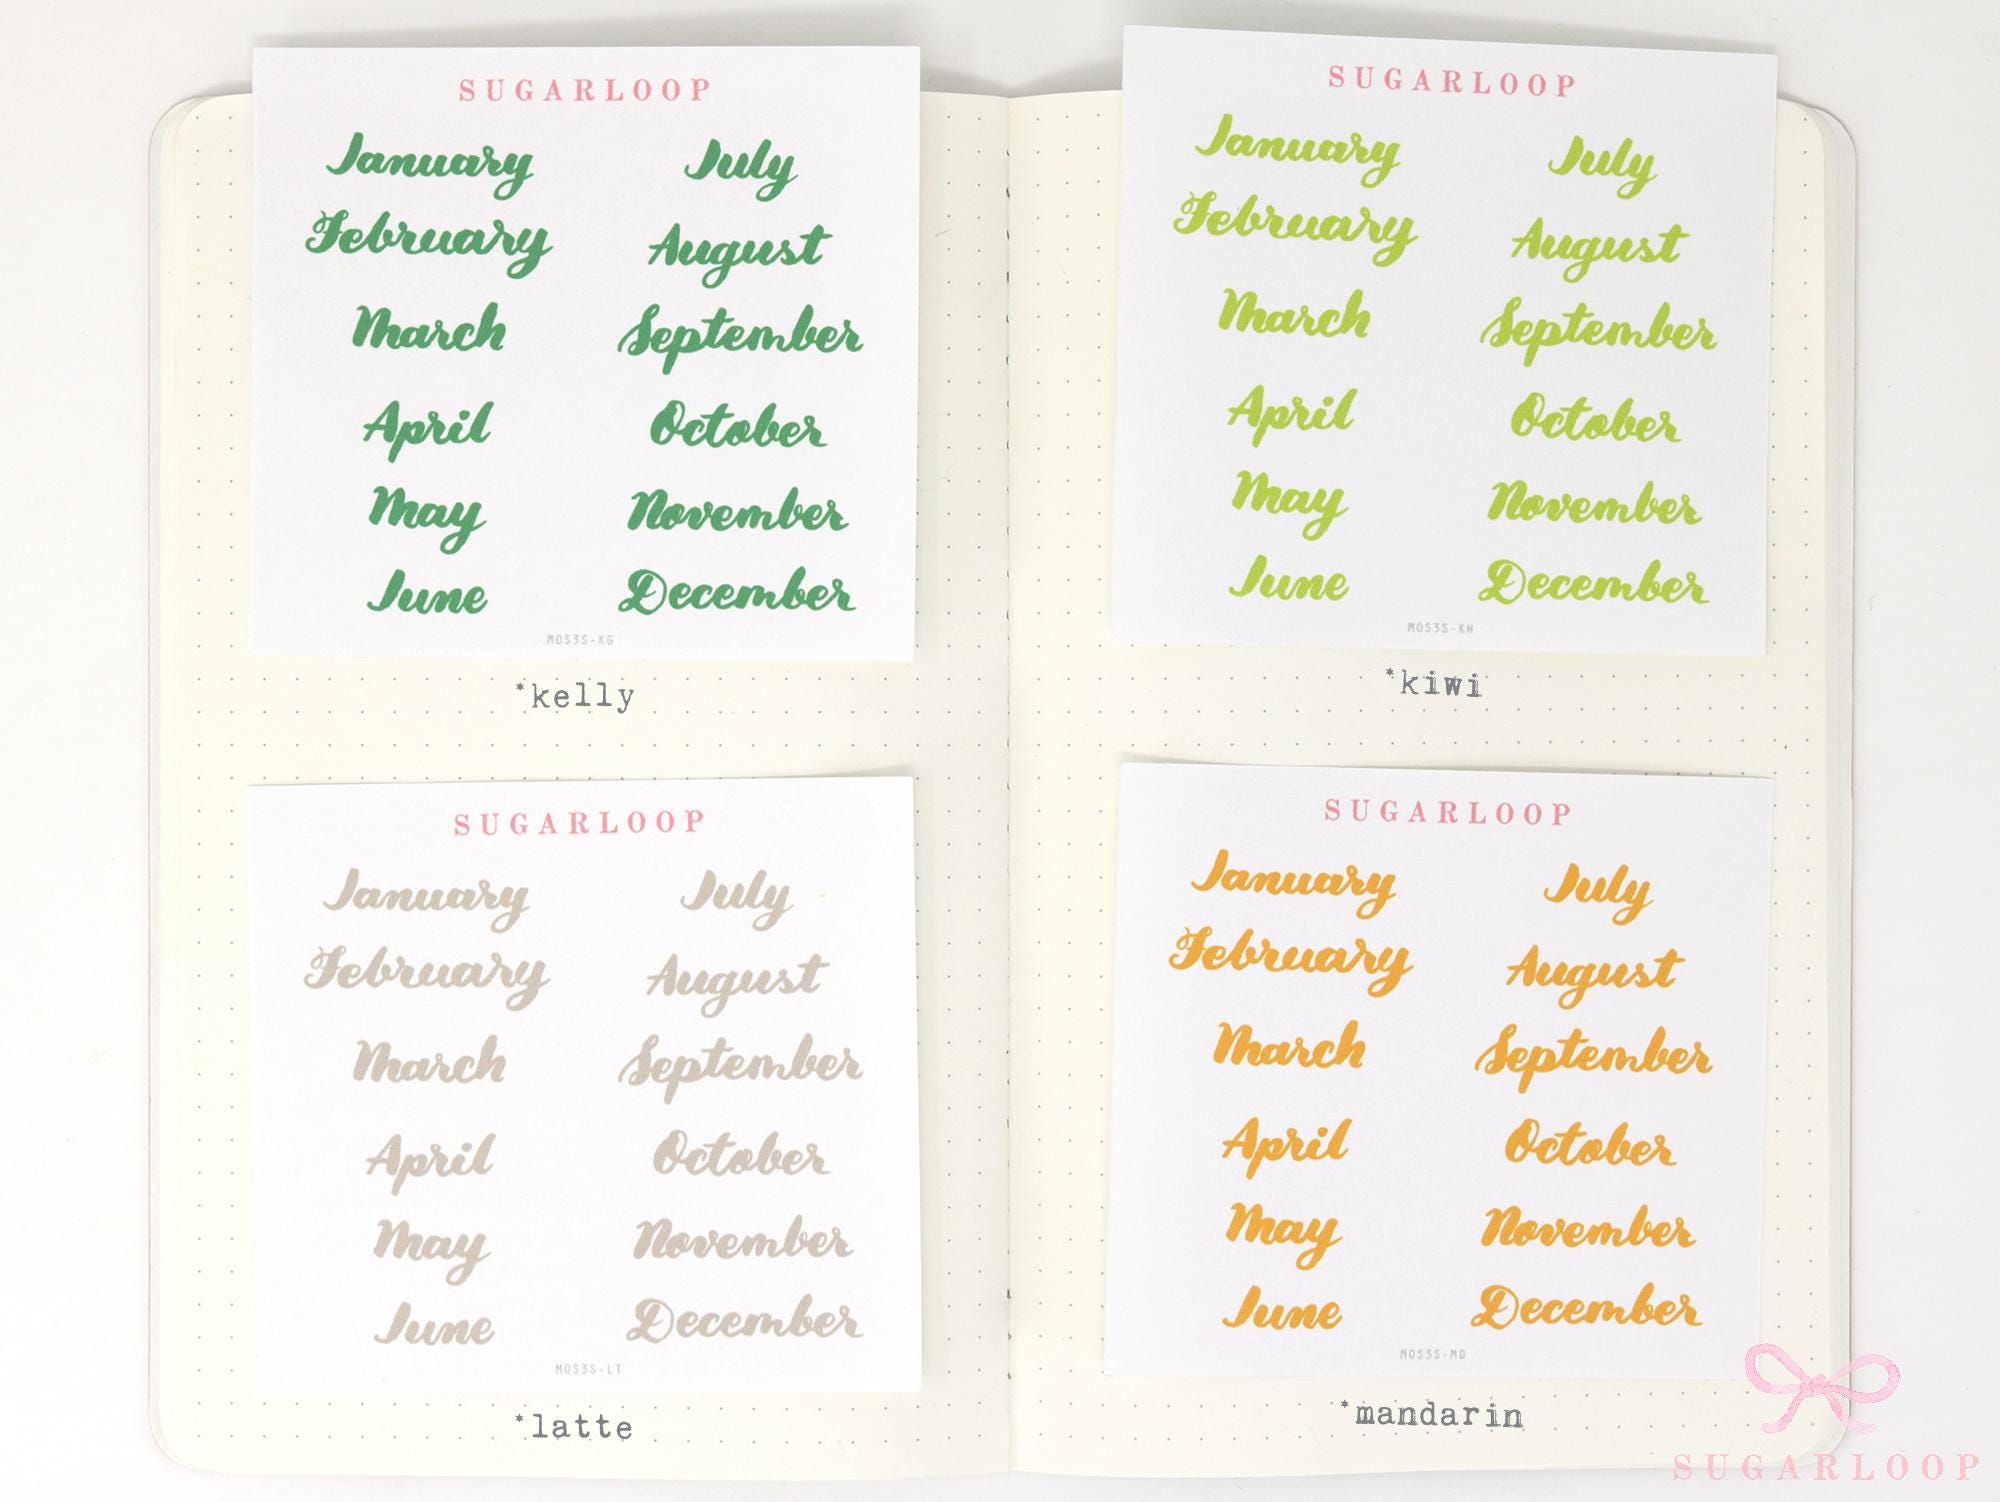 SUGARLOOP
January
February
March
April
May
June
July
August
September
October
November
December
MOS3S-KG
*kelly
SUGARLOOP
January
February
March
April
May
June
July
August
September
October
November
December
MOS3S-KW
*kiwi
SUGARLOOP
January
February
March
April
May
June
July
August
September
October
November
December
MOS3S-LT
*latte
SUGARLOOP
January
February
March
April
May
June
July
August
September
October
November
December
MOS3S-MD
*mandarin
SUGARLOOP